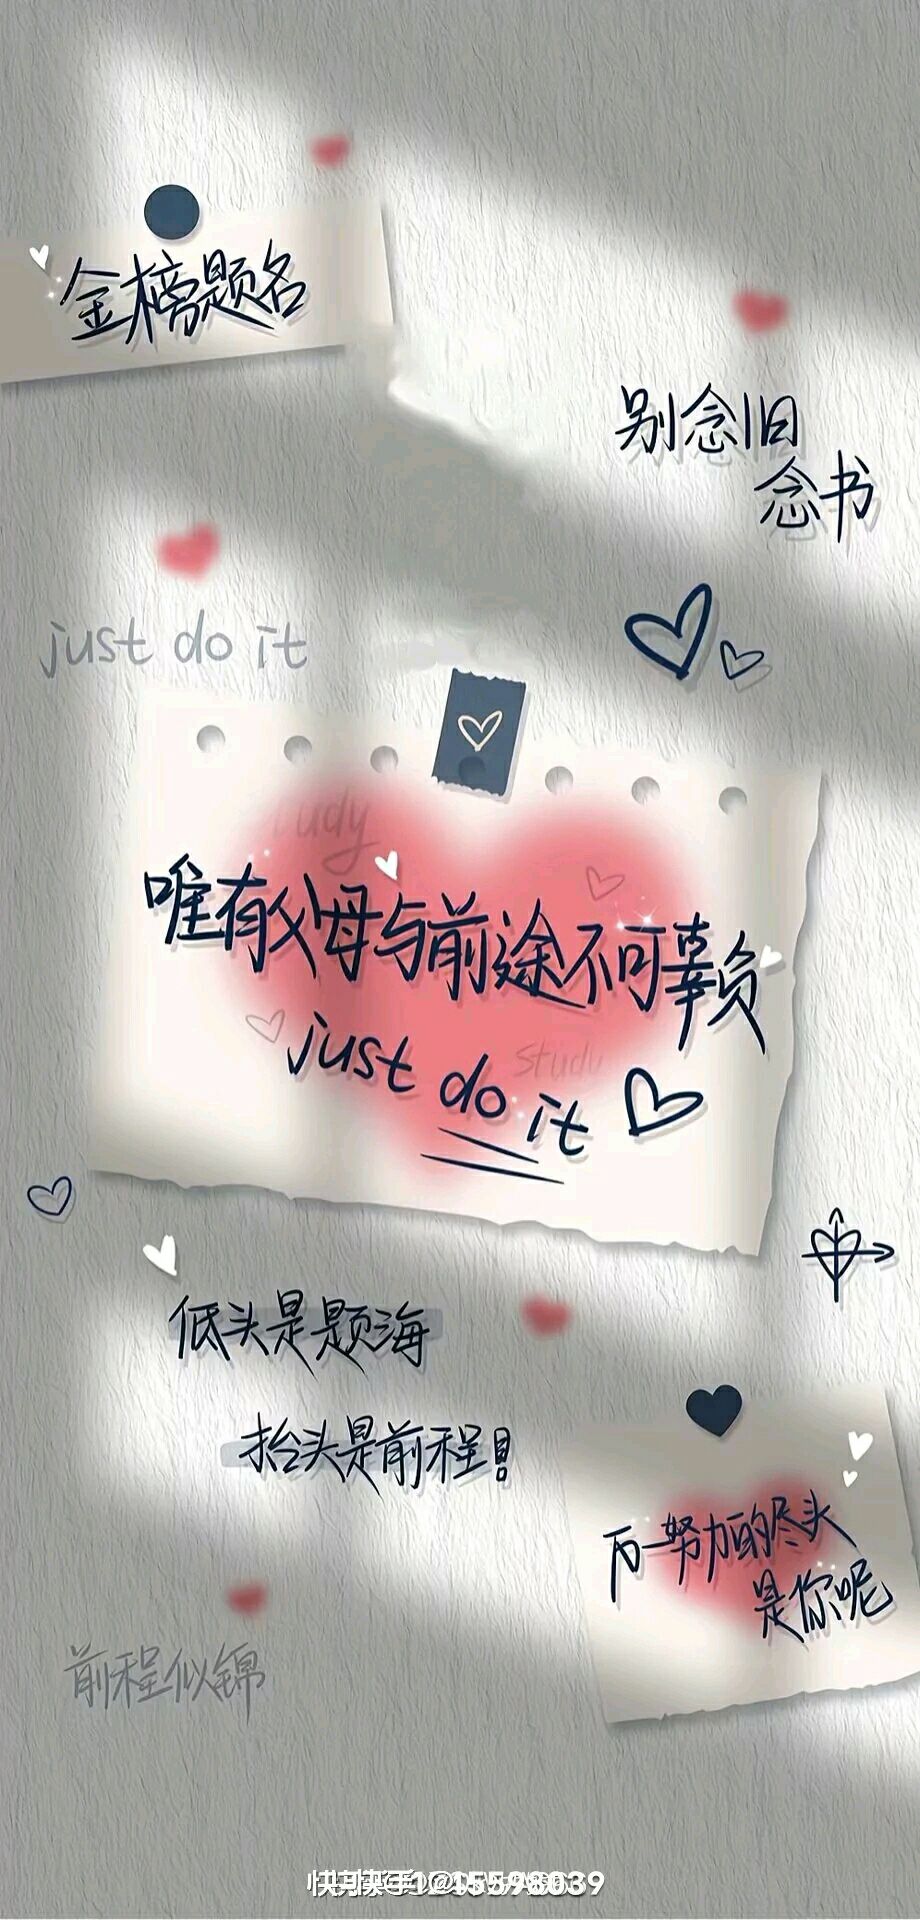 金榜题名
别念旧
念书
just do it
study
唯有父母与前途不可辜负
study
just do it
低头是题海
抬头是前程!
万一努力的尽头
是你呢
前程似锦